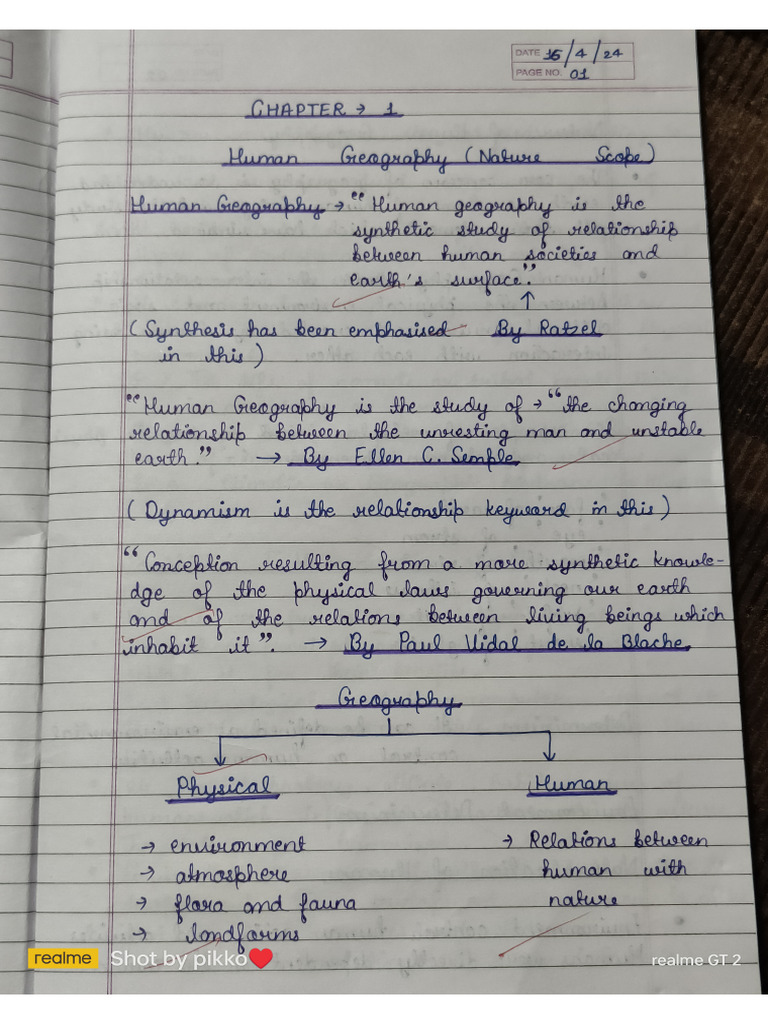 DATE 15/4/24
PAGE NO. 01
CHAPTER → 1
Human Geography (Nature Scope)
Human Geography → “Human geography is the
synthetic study of relationship
between human societies and
earth's surface.”
↑
(Synthesis has been emphasised By Ratzel
in this)
“Human Geography is the study of → “the changing
relationship between the unresting man and unstable
earth.” → By Ellen C. Semple
(Dynamism is the relationship keyword in this)
“Conception resulting from a more synthetic knowle-
dge of the physical laws governing our earth
and of the relations between living beings which
inhabit it”. → By Paul Vidal de la Blache
Geography
Physical Human
→ environment → Relations between
→ atmosphere human with
→ flora and fauna nature
→ landforms
realme Shot by pikko❤️ realme GT 2